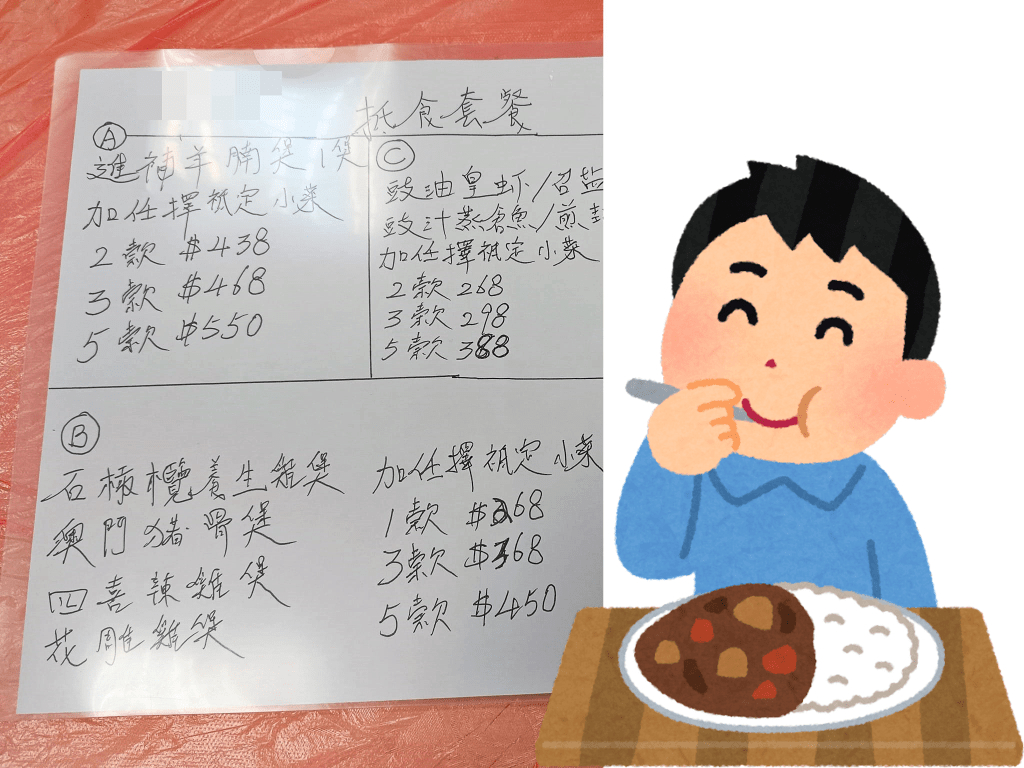 抵食套餐
A
進補羊腩煲1煲
加任擇祗定小菜
2款 $438
3款 $468
5款 $550
C
豉油皇虾/召盐
豉汁蒸倉魚/煎封
加任擇祗定小菜
2款 268
3款 298
5款 388
B
石橄欖養生雞煲
澳門猪骨煲
四喜辣雞煲
花雕雞煲
加任擇祗定小菜
1款 $268
3款 $368
5款 $450